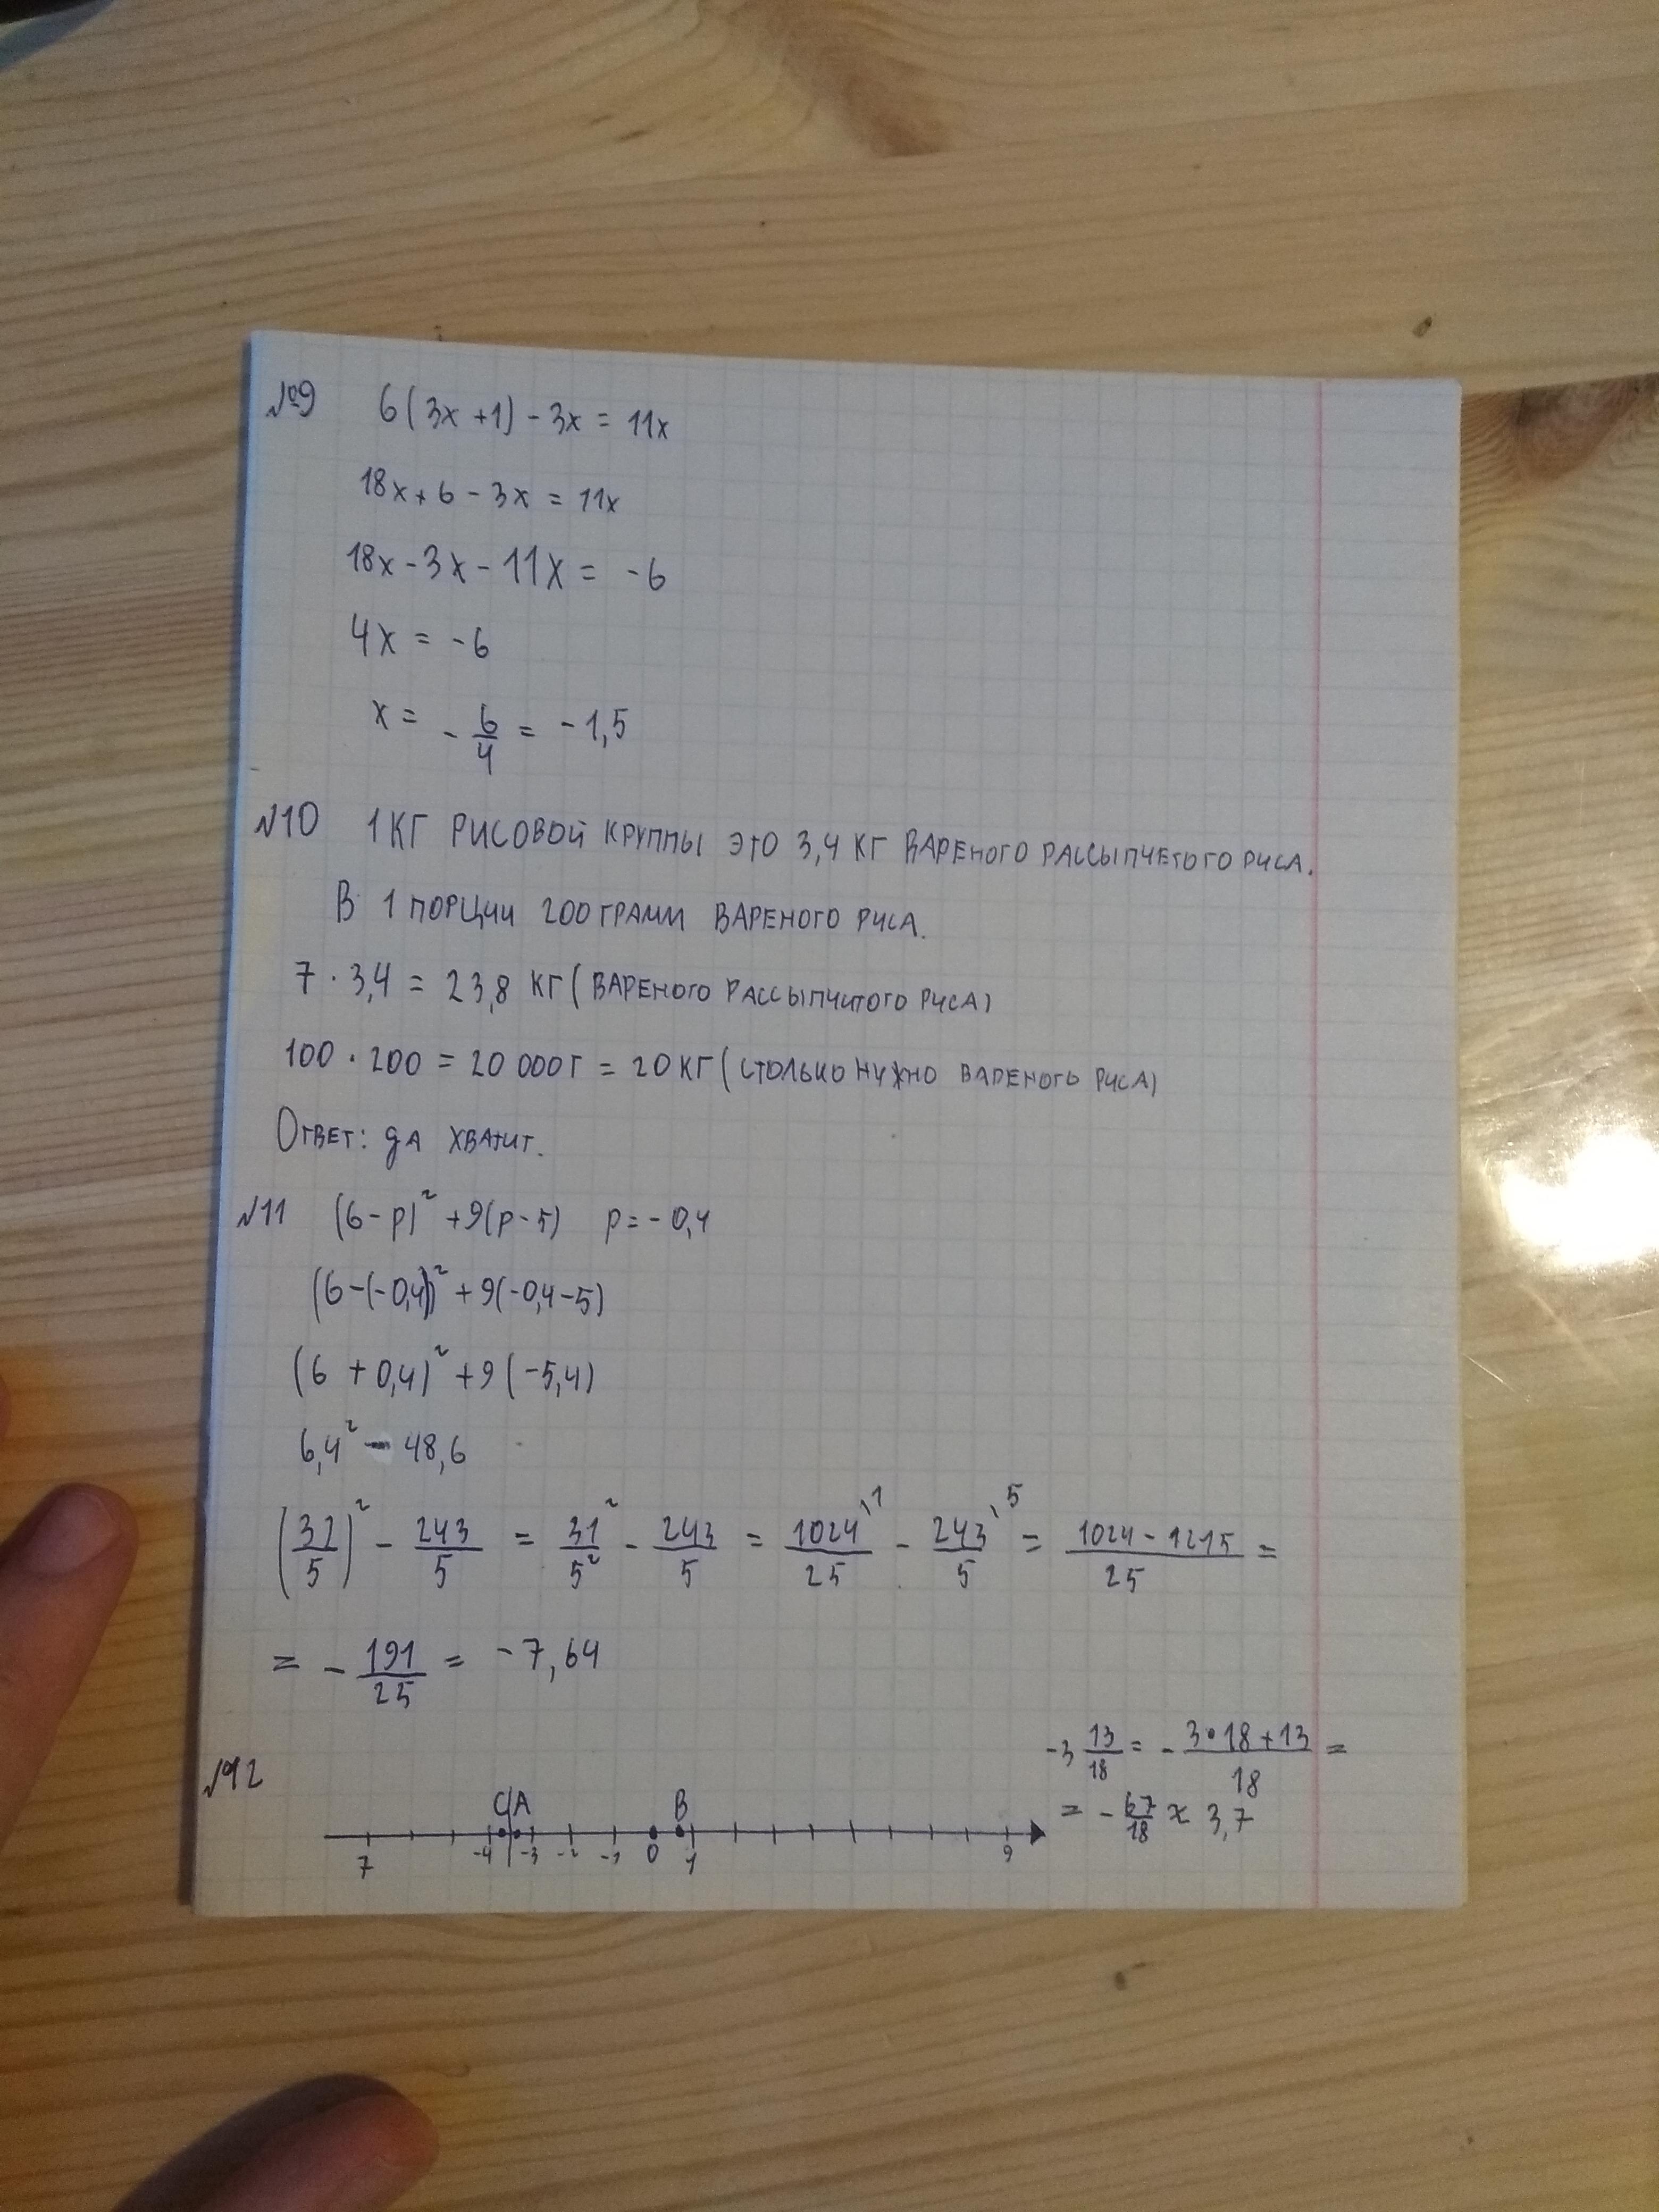 №9 6(3x+1)-3x=11x
18x+6-3x=11x
18x-3x-11x=-6
4x=-6
x=-6/4=-1,5
№10 1 КГ РИСОВОЙ КРУППЫ ЭТО 3,4 КГ ВАРЕНОГО РАССЫПЧЕТОГО РИСА.
В 1 ПОРЦИИ 200 ГРАММ ВАРЕНОГО РИСА.
7·3,4=23,8 КГ(ВАРЕНОГО РАССЫПЧИТОГО РИСА)
100·200=20 000Г=20 КГ(СТОЛЬКО НУЖНО ВАРЕНОГО РИСА)
ОТВЕТ: ДА ХВАТИТ.
№11 (6-p)²+9(p-5) p=-0,4
(6-(-0,4))²+9(-0,4-5)
(6+0,4)²+9(-5,4)
6,4²-48,6
(32/5)²-243/5=32²/5²-243/5=1024\1/25-243\5/5=1024-1215/25=
=-191/25=-7,64
№12
-3 13/18=-3·18+13/18=
=-67/18≈3,7
C A B
7 -4 -3 -2 -1 0 1 9